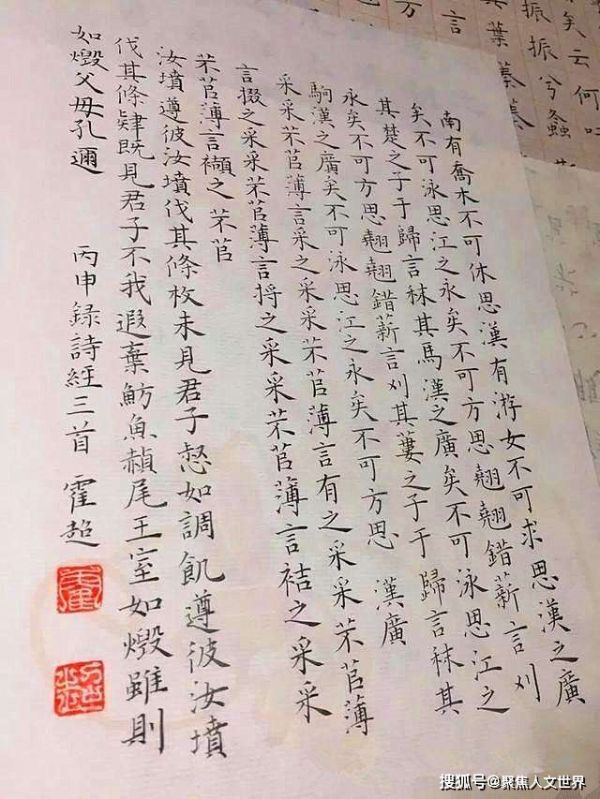 南有喬木不可休思漢有游女不可求思漢之廣
矣不可泳思江之永矣不可方思翹翹錯薪言刈
其楚之子于歸言秣其馬漢之廣矣不可泳思江之
永矣不可方思翹翹錯薪言刈其蔞之子于歸言秣其
駒漢之廣矣不可泳思江之永矣不可方思 漢廣
采采芣苢薄言采之采采芣苢薄言有之采采芣苢薄
言掇之采采芣苢薄言捋之采采芣苢薄言袺之采采
芣苢薄言襭之 芣苢
汝墳遵彼汝墳伐其條枚未見君子惄如調飢遵彼汝墳
伐其條肄既見君子不我遐棄魴魚赬尾王室如燬雖則
如燬父母孔邇 丙申錄詩經三首 霍超
矣云何
振振兮螽
其葉蓁
搜狐号@聚焦人文世界